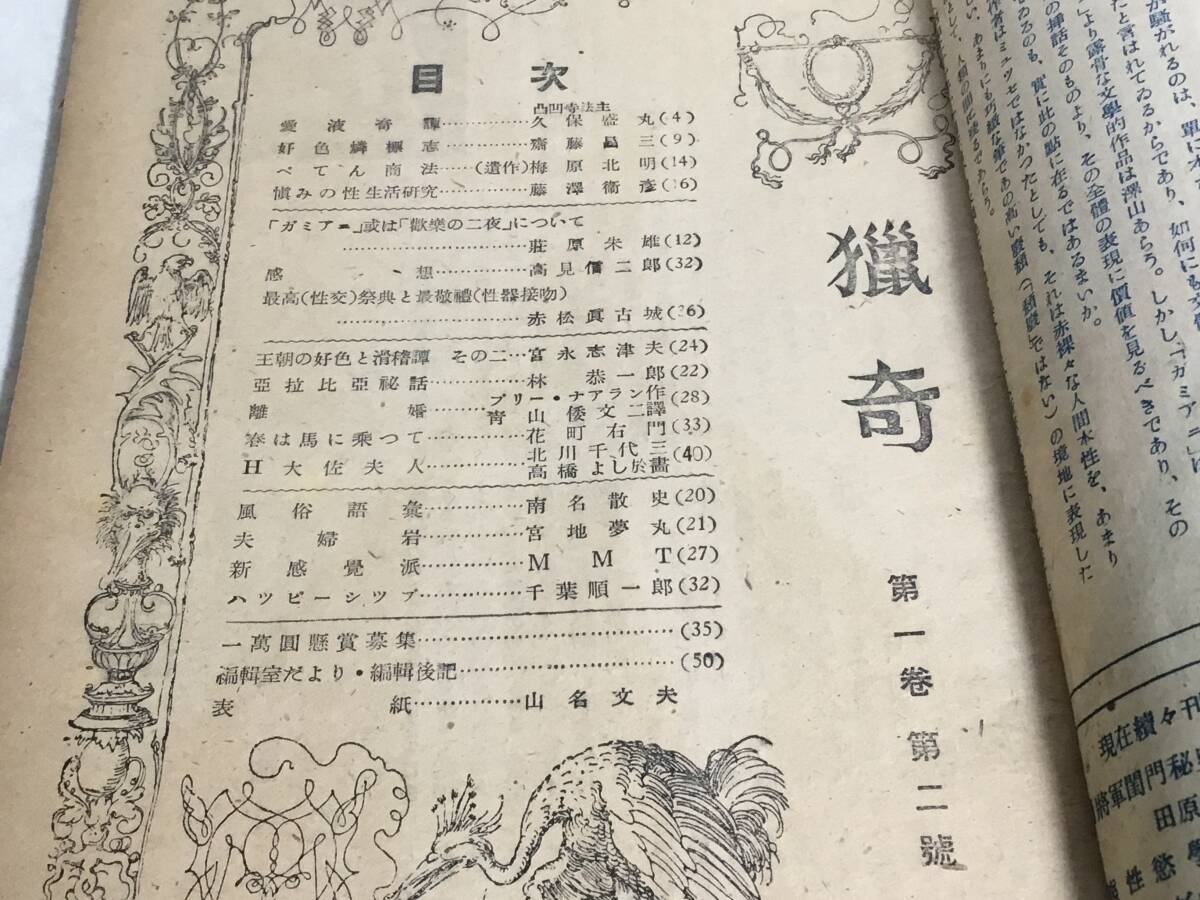 が騷がれるのは、單に
たと言はれてゐるからであり、如何にも文
より露骨な文學的作品は澤山あらう。しかし、「ガミアニ」は
の挿話そのものより、その全體の表現に價値を見るべきであり、その
ゐるのも、實に此の點に在るではあるまいか。
作者はミュッセではなかつたとしても、それは赤裸々な人間本性を、あまり
しい、あまりにも巧緻な筆であの高い
の境地に表現した
現在續々刊
將軍閨門秘
田原
性慾
獵奇
第一卷第二號
目次
凸凹寺法主
愛液奇譚……………久保盛丸(4)
好色燐票志……………齋藤昌三(9)
ぺてん商法……(遺作)梅原北明(14)
愼みの性生活研究………藤澤衞彦(16)
「ガミアニ」或は「歡樂の二夜」について
……………莊原朱雄(12)
感想……………高見信二郎(32)
最高(性交)祭典と最敬禮(性器接吻)
……………赤松眞古城(36)
王朝の好色と滑稽譚 その二…宮永志津夫(24)
亞拉比亞祕話…………林恭一郎(22)
離婚………プリー・ナアラン作
青山倭文二譯(28)
春は馬に乘つて…………花町右門(33)
H大佐夫人…………北川千代三
高橋よし於畫(40)
風俗語彙……………南名散史(20)
夫婦岩……………宮地夢丸(21)
新感覺派……………MMT(27)
ハツピーシツプ……………千葉順一郎(32)
一萬圓懸賞募集……………………(35)
編輯室だより・編輯後記……………………(50)
表紙……………山名文夫